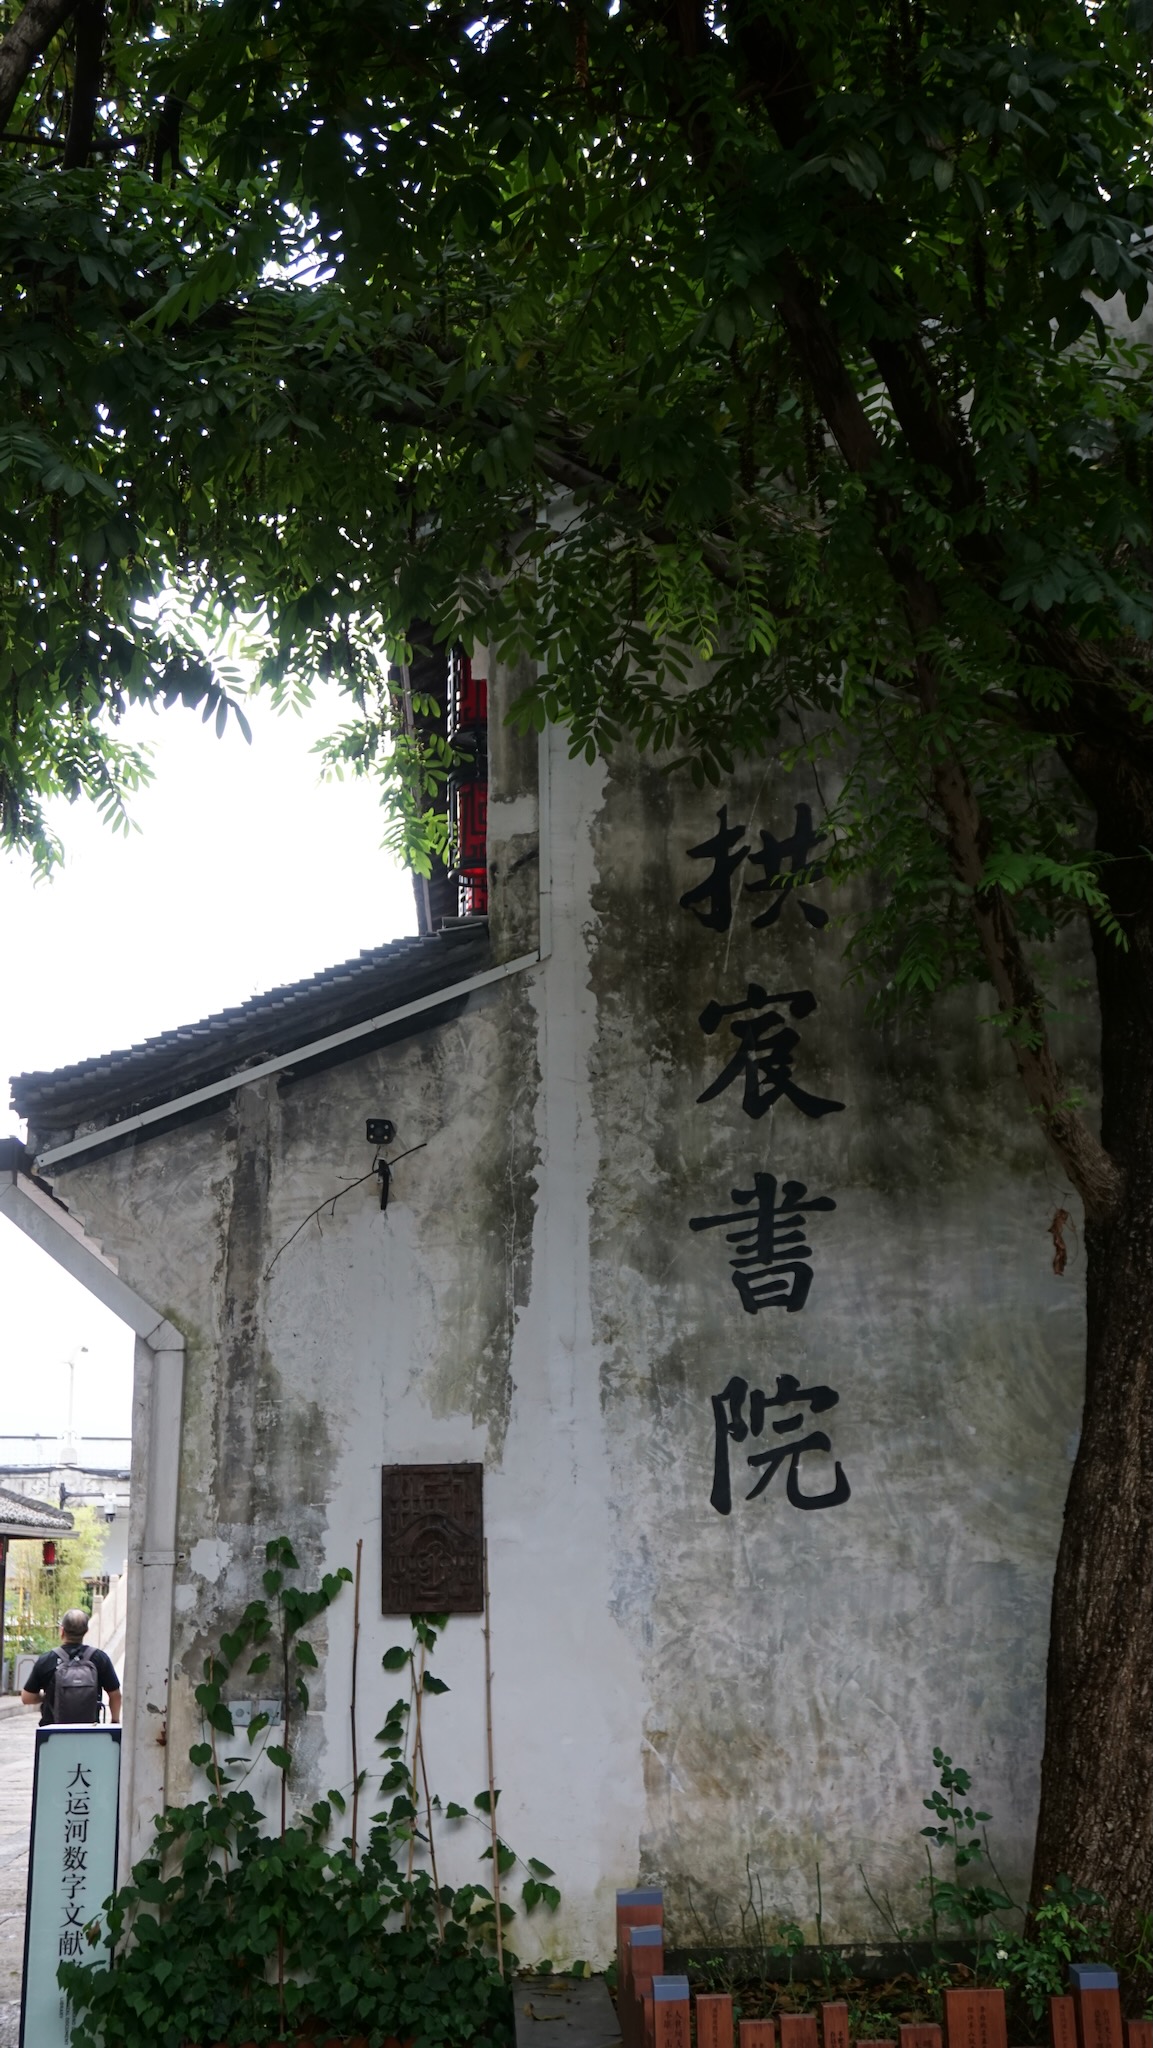 拱宸書院
大运河数字文献